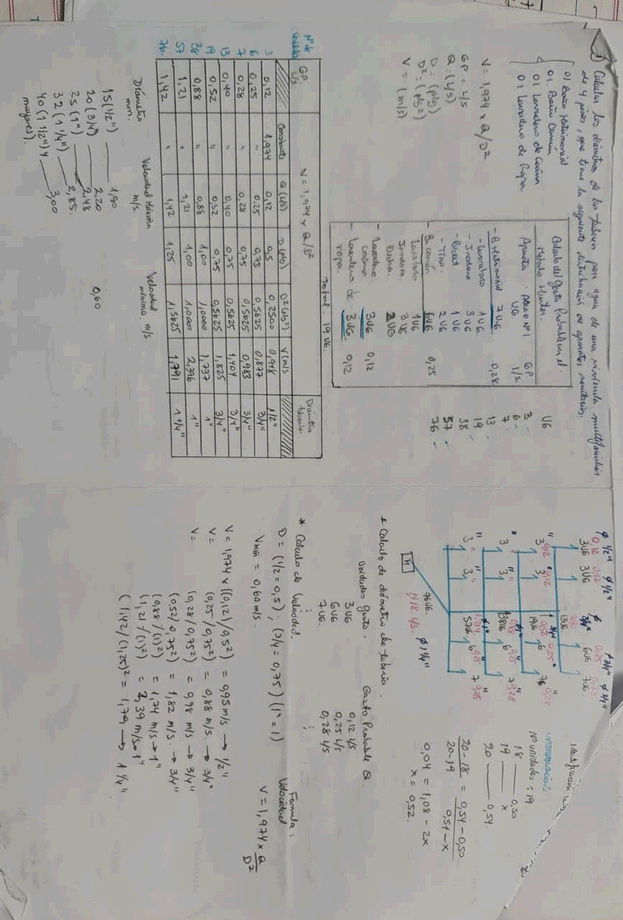 1) Calcular los diámetros de las tuberías para agua de una vivienda multifamiliar
de 4 pisos, que tiene la siguiente distribución de aparatos sanitarios.
01 Baño Matrimonial
01 Baño Común
01 Lavadero de Cocina
01 Lavadero de Ropa
V = 1,974 x Q/D²
GP = L/s
Q = (L/s)
D = (pulg)
D² = (pulg²)
V = (m/s)
Cálculo del Gasto Probable en el
Método Hunter.
Aparato
UG
GP
- B. Matrimonial 7UG 0,28
- Lavatorio 1 UG
- Inodoro 3 UG
- Bidet 1 UG
- Tina 2 UG
- B. común 6UG 0,25
Lavatorio 1UG
Inodoro 3 UG
Ducha 2UG
- Lavadero cocina 3UG 0,12
- Lavadero de ropa 3UG 0,12
Total 19 UG.
UG
3
6
7
13
19
38
57
76
V = 1,974 x Q/D²
N° de GP L/s Constante Q (L/s) D (pulg) D² (pulg²) V (m/s) Diámetro
3 0,12 1,974 0,12 0,5 0,2500 0,948 1/2"
6 0,25 " 0,25 0,75 0,5625 0,877 3/4"
7 0,28 " 0,28 0,75 0,5625 0,983 3/4"
13 0,40 " 0,40 0,75 0,5625 1,404 3/4"
19 0,52 " 0,52 0,75 0,5625 1,825 3/4"
38 0,88 " 0,88 1,00 1,0000 1,737 1"
57 1,21 " 1,21 1,00 1,0000 2,396 1"
76 1,42 " 1,42 1,25 1,5625 1,7911 1 1/4"
Diámetro mm. Velocidad Máxima m/s. Velocidad mínima m/s
15 (1/2") 1,90
20 (3/4") 2,20
25 (1") 2,48
32 (1 1/4") 2,85
40 (1 1/2") y mayores). 3,00
0,60
Ø 1/2" Ø 1/2" Ø 3/4" Ø 3/4"
3UG 3 UG 6UG 7UG
76UG
1,42 L/s. Ø 1 1/4"
N° unidades : 19
18 0,50
19 x
20 0,54
20-18 = 0,54-0,50
20-19 0,54-x
0,04 = 1,08 - 2x
x = 0,52.
* Calculo de diámetro de tubería.
Unidades gasto. Gasto Probable Q.
3UG 0,12 L/s
6UG 0,25 L/s
7UG. 0,28 L/s
* Calculo de Velocidad.
D = (1/2 = 0,5) ; (3/4 = 0,75) (1" = 1)
Vmin = 0,60 m/s.
Fórmula:
Velocidad
V = 1,974 x Q
D²
V = 1,974 x (0,12 / 0,5²) = 0,95 m/s → 1/2"
V = (0,25 / 0,75²) = 0,88 m/s. → 3/4"
V = (0,28 / 0,75²) = 0,98 m/s → 3/4"
(0,52 / 0,75²) = 1,82 m/s. → 3/4"
(0,88 / (1)²) = 1,74 m/s → 1"
(1,21 / (1)²) = 2,39 m/s → 1"
(1,42 / (1,25)² = 1,79 → 1 1/4"